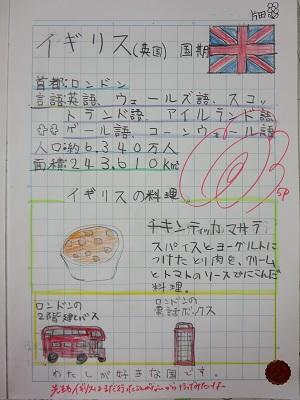 片田
イギリス(英国) 国期
首都:ロンドン
言語:英語、ウェールズ語、スコッ
トランド語、アイルランド語
ゲール語、コーンウェール語
人口:約6.340万人
面積:243.610K㎡
イギリスの料理。
5P
チキンティッカ・マサラ
スパイスとヨーグルトに
つけたとり肉を、クリーム
とトマトのソースでにこんだ
料理。
ロンドンの
2階建てバス
ロンドンの
電話ボックス
わたしが好きな国です。
先生もイギリスはまだ行ったことがないから行ってみたいな